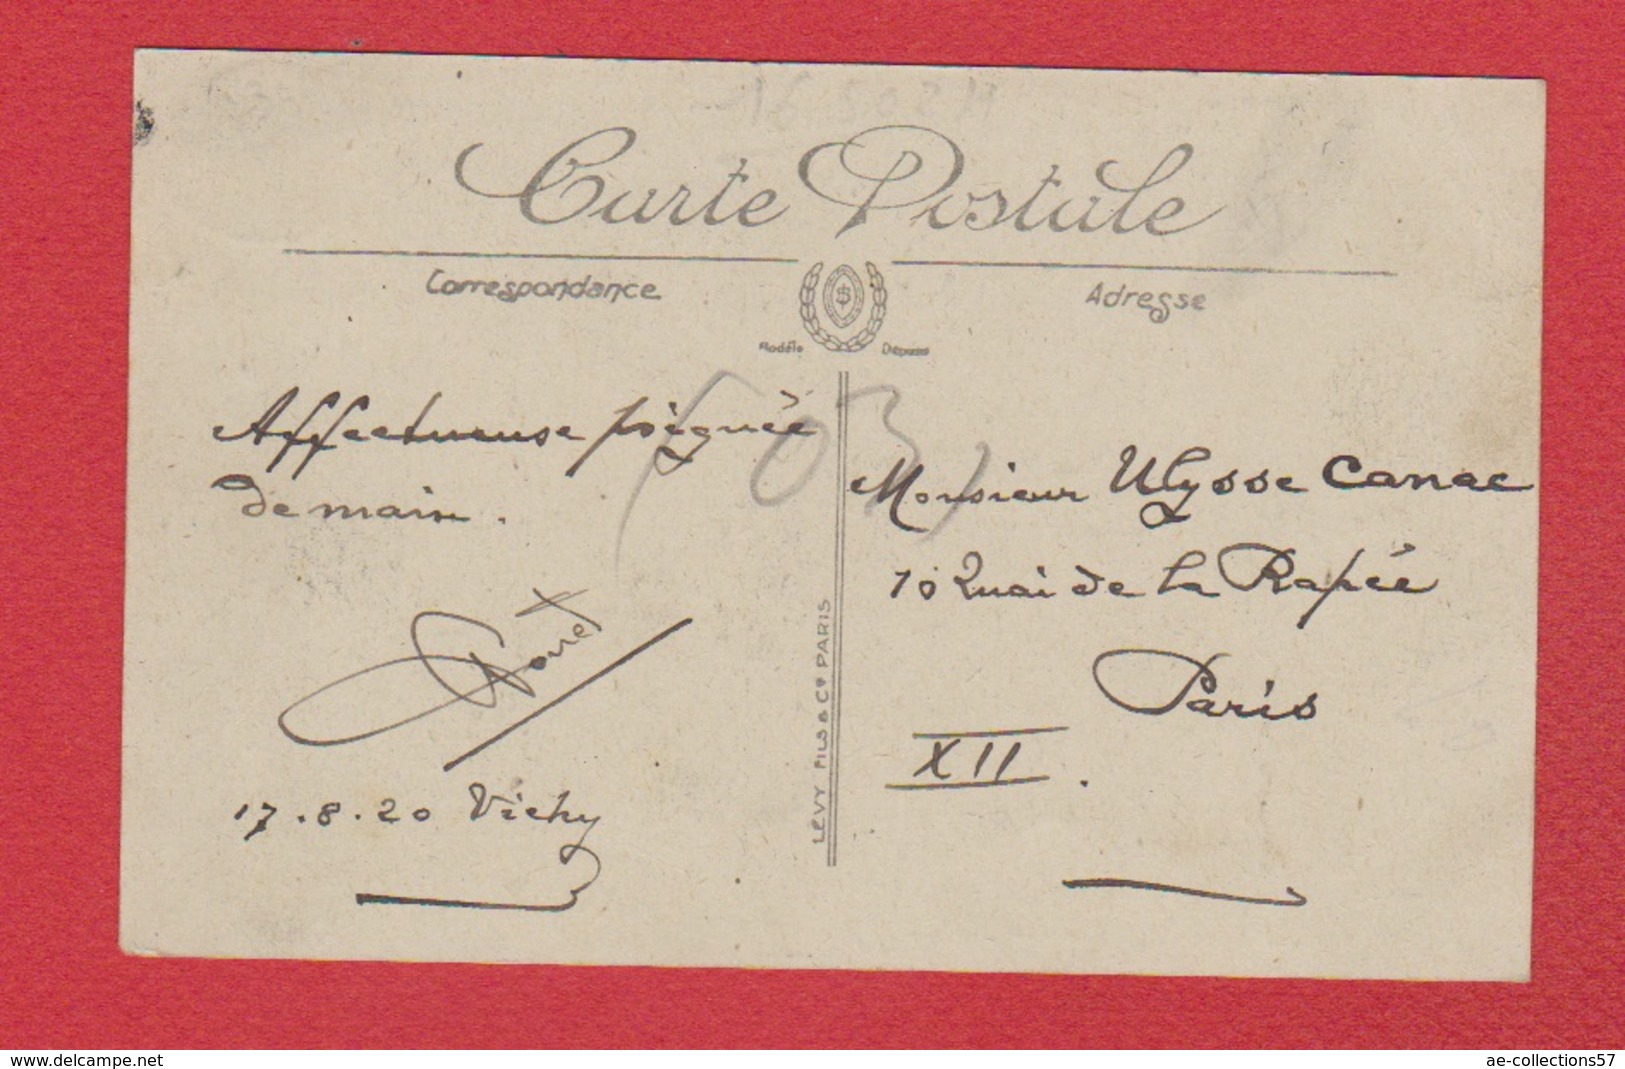 Carte Postale
Correspondance
Adresse
Modèle Déposé
Affectueuse poignée
de main.
17.8.20 Vichy
LEVY FILS & Cº PARIS
(03)
Monsieur Ulysse Canac
10 Quai de la Rapée
Paris
XII.
www.delcampe.net
ae-collections57